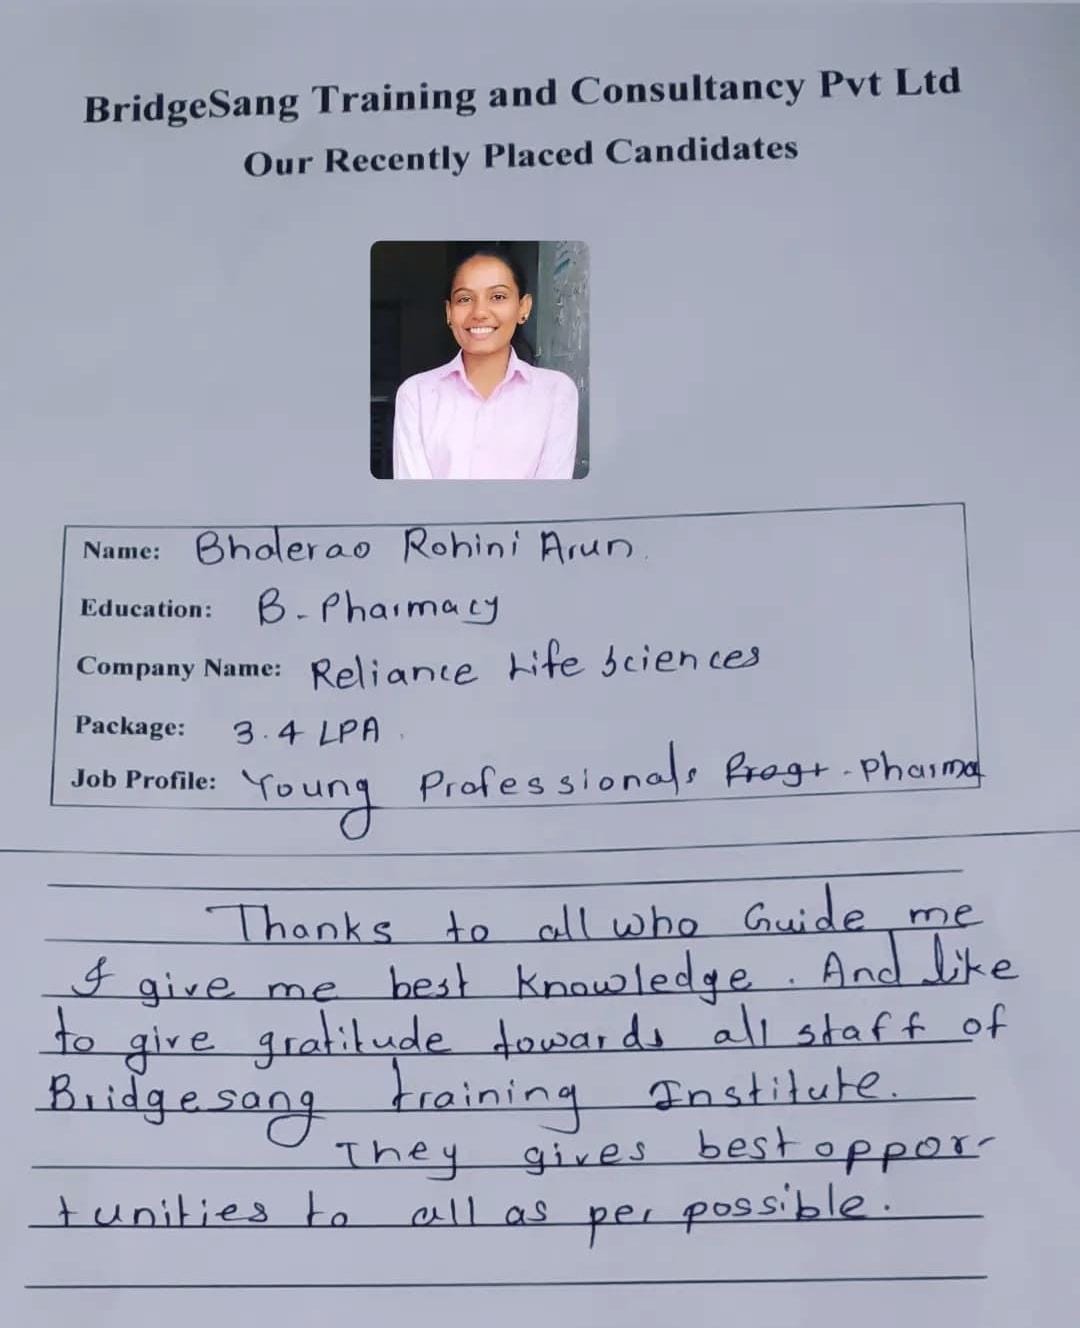 BridgeSang Training and Consultancy Pvt Ltd
Our Recently Placed Candidates
Name: Bhalerao Rohini Arun.
Education: B-Pharmacy
Company Name: Reliance Life Sciences
Package: 3.4 LPA.
Job Profile: Young Professionals Prog - Pharma
Thanks to all who Guide me
& give me best knowledge. And like
to give gratitude towards all staff of
Bridgesang training Institute.
They gives best oppor-
tunities to all as per possible.